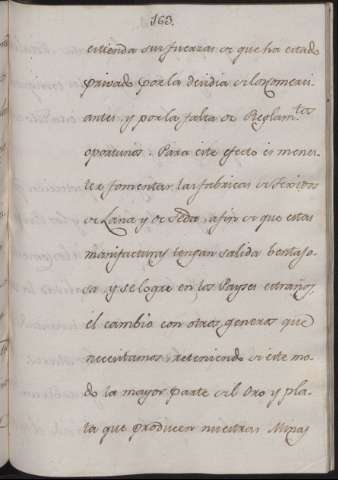 163.
estienda sus fuerzas de que ha estado
privado por la desidia de los Comerci-
antes, y por la falta de Reglam.tos
oportunos. Para este efecto es menes-
ter fomentar las fabricas de Texidos
de Lana, y de Seda, afin de que estas
manifacturas tengan salida bentajo-
sa, y se logre en los Payses estraños,
el cambio con otros generos que
necesitamos, reteniendo de este mo-
do la mayor parte del Oro y pla-
ta que producen nuestras Minas